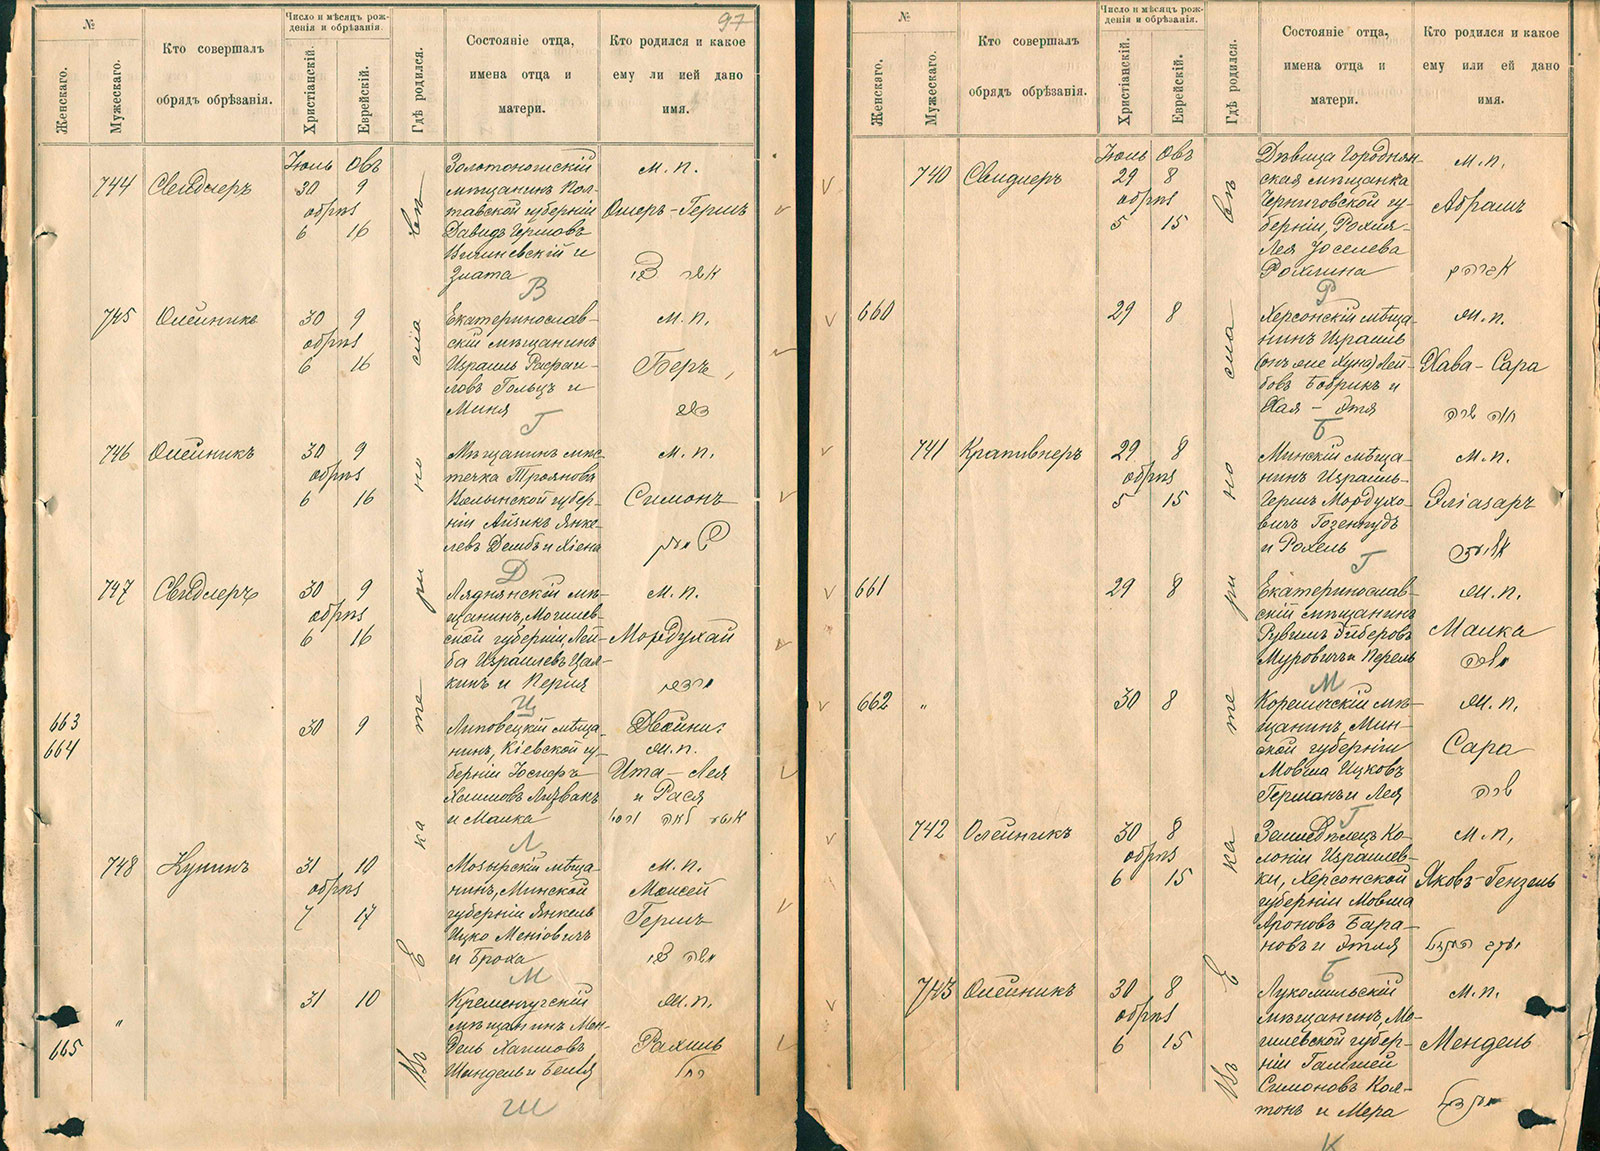 97
№
Женскаго.
Мужескаго.
Кто совершалъ
обрядъ обрѣзанія.
Число и мѣсяцъ рож-
денія и обрѣзанія
Христіанскій.
Еврейскій.
Гдѣ родился.
Состояніе отца,
имена отца и
матери.
Кто родился и какое
ему ли ией дано
имя.
744 Свидлеръ
Іюль Овъ
30 9
обрѣз
6 16
Золотоношскій
мѣщанинъ Пол-
тавской губерніи
Давидъ Гершовъ
и
Злата
В
м. п.
Ошеръ-Гершъ
745 Олейникъ
30 9
обрѣз
6 16
Екатеринослав-
скій мѣщанинъ
Израиль Рафаи-
ловъ Гольцъ и
Миня
Г
м. п.
Беръ
746 Олейникъ
30 9
обрѣз
6 16
Мѣщанинъ мѣс-
течка Троянова
Волынской губер-
ніи Айзикъ Янке-
левъ Дембъ и Хіена
Д
м. п.
Симонъ
747 Свидлеръ
30 9
обрѣз
6 16
Ляднянскій мѣ-
щанинъ, Могилев-
ской губерніи, Лей-
ба Израилевъ Цал-
кинъ и Перля
Ц
м. п.
Мордухай
מרדכי
663
664
30 9
Липовецкій мѣща-
нинъ, Кіевской гу-
берніи Іосифъ
Хаимовъ Литвакъ
и Малка
Л
Двойни:
ж. п.
Ита-Лея
и Рася
748 Купинъ
31 10
обрѣз
7 17
Мозырскій мѣща-
нинъ, Минской
губерніи Янкель
Ицко Меніовичъ
и Броха
М
м. п.
Моисей
Гершъ
משה צבי
"
665
31 10
Кременчугскій
мѣщанинъ Мен-
дель Хаимовъ
Шандель и Бейля
Ш
ж. п.
Рахиль
רחל
Въ Екатеринославѣ
№
Женскаго.
Мужескаго.
Кто совершалъ
обрядъ обрѣзанія.
Число и мѣсяцъ рож-
денія и обрѣзанія
Христіанскій.
Еврейскій.
Гдѣ родился.
Состояніе отца,
имена отца и
матери.
Кто родился и какое
ему или ей дано
имя.
740 Свидлеръ
Іюль Овъ
29 8
обрѣз
5 15
Дѣвица Городнян-
ская мѣщанка
Черниговской гу-
берніи, Рохля-
Лея Іоселева
Рохлина
Р
м. п.
Абрамъ
אברהם
660
29 8
Херсонскій мѣща-
нинъ Израиль
(онъ же Хуна) Лей-
бовъ Бобрикъ и
Хая-Этя
Б
ж. п.
Хава-Сара
חוה שרה
741 Крапивнеръ
29 8
обрѣз
5 15
Минскій мѣща-
нинъ Израиль-
Гершъ Мордухо-
вичъ Гозенпудъ
и Рохель
Г
м. п.
Эліазаръ
661
29 8
Екатеринослав-
скій мѣщанинъ
Рувимъ
Муровичъ и Перель
М
ж. п.
Малка
מלכה
662 "
30 8
мѣ-
щанинъ, Мин-
ской губерніи
Мовша Ицковъ
Германъ и Лея
Г
ж. п.
Сара
שרה
742 Олейникъ
30 8
обрѣз
6 15
Земледѣлецъ Ко-
лоніи Израилев-
ки, Херсонской
губерніи Мовша
Ароновъ Бара-
новъ и Этля
Б
м. п.
Яковъ-Гензель
743 Олейникъ
30 8
обрѣз
6 15
Лукомльскій
мѣщанинъ, Мо-
гилевской губер-
ніи
Симоновъ Кол-
тонъ и Мера
К
м. п.
Мендель
מענדל
Въ Екатеринославѣ